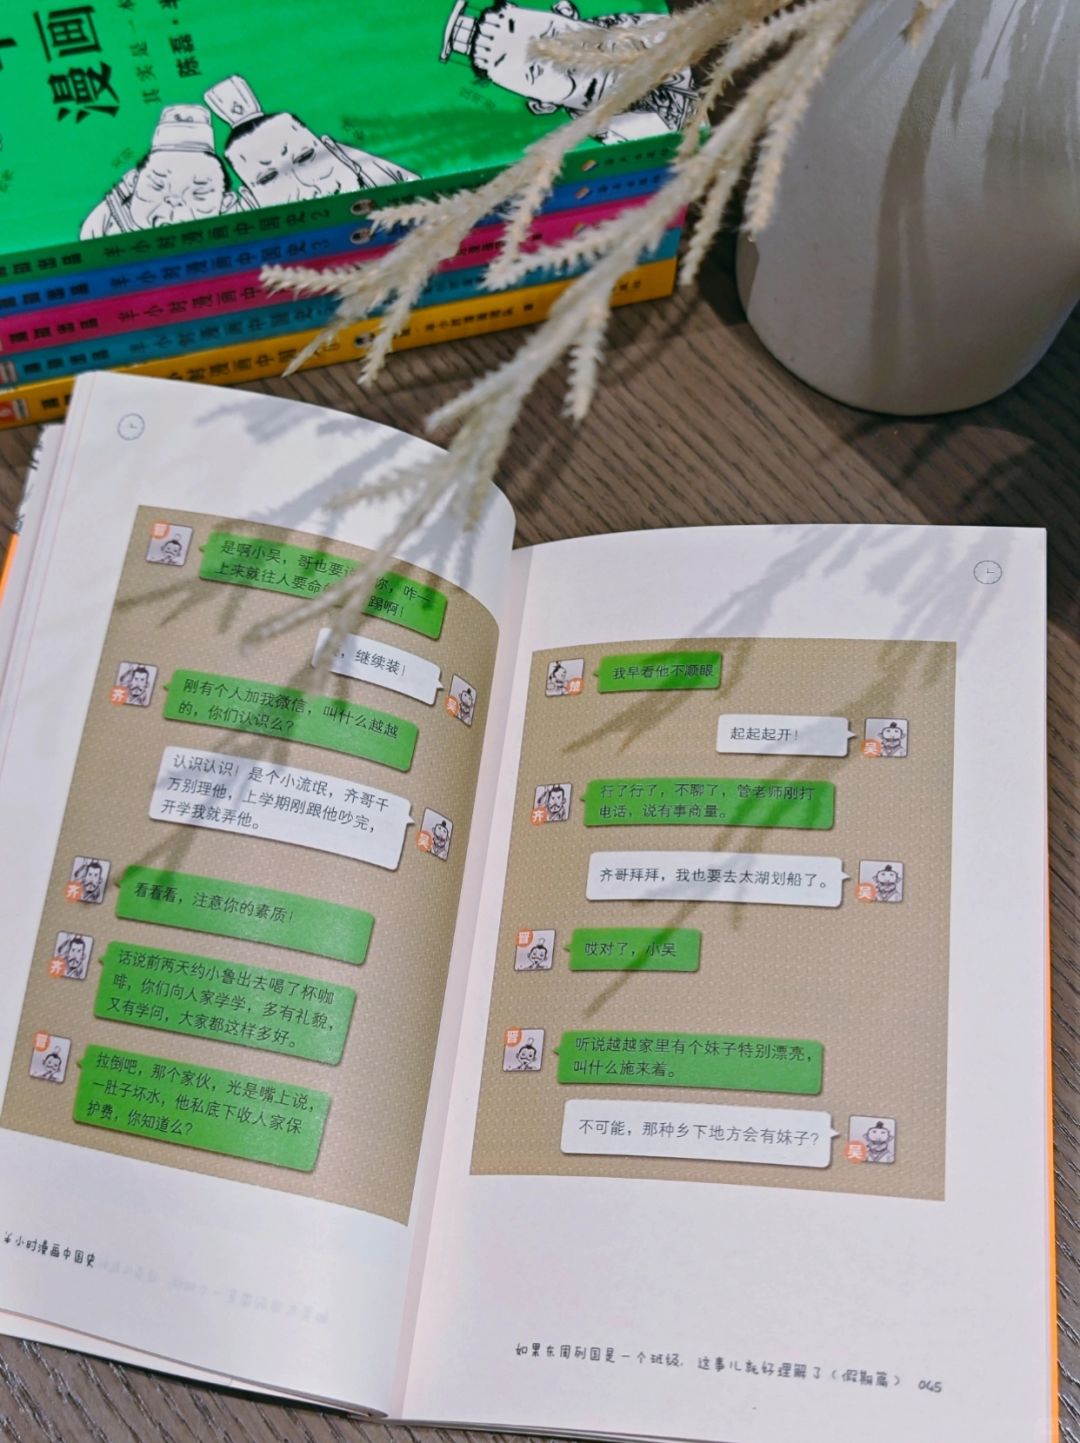 漫画
其实是一本
陈磊·半
半小时漫画中国史2
半小时漫画中国史3
半小时漫画中国
半小时漫画中国史
小时漫画中国
晋
是啊小吴，哥也要说你，咋一
上来就往人要命
踢啊！
，继续装！
吴
齐
刚有个人加我微信，叫什么越越
的，你们认识么？
认识认识！是个小流氓，齐哥千
万别理他，上学期刚跟他吵完，
开学我就弄他。
吴
齐
看看看，注意你的素质！
齐
话说前两天约小鲁出去喝了杯咖
啡，你们向人家学学，多有礼貌，
又有学问，大家都这样多好。
晋
拉倒吧，那个家伙，光是嘴上说，
一肚子坏水，他私底下收人家保
护费，你知道么？
半小时漫画中国史
我早看他不顺眼
起起起开！
吴
齐
行了行了，不聊了，管老师刚打
电话，说有事商量。
齐哥拜拜，我也要去太湖划船了。
吴
晋
哎对了，小吴
晋
听说越越家里有个妹子特别漂亮，
叫什么施来着。
不可能，那种乡下地方会有妹子？
吴
如果东周列国是一个班级，这事儿就好理解了（假期篇） 045